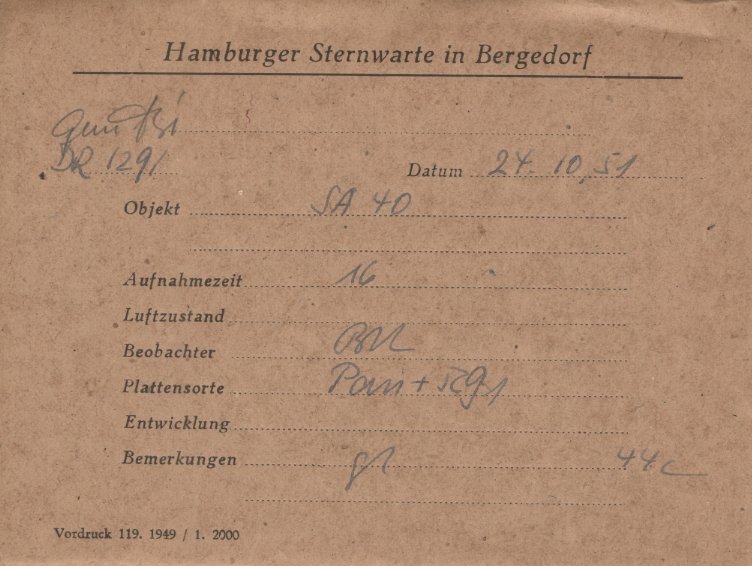 Hamburger Sternwarte in Bergedorf
DR 1291
Datum 24. 10. 51
Objekt SA 40
Aufnahmezeit 16
Luftzustand
Beobachter
Plattensorte Pan +
Entwicklung
Bemerkungen 44c
Vordruck 119. 1949 / 1. 2000